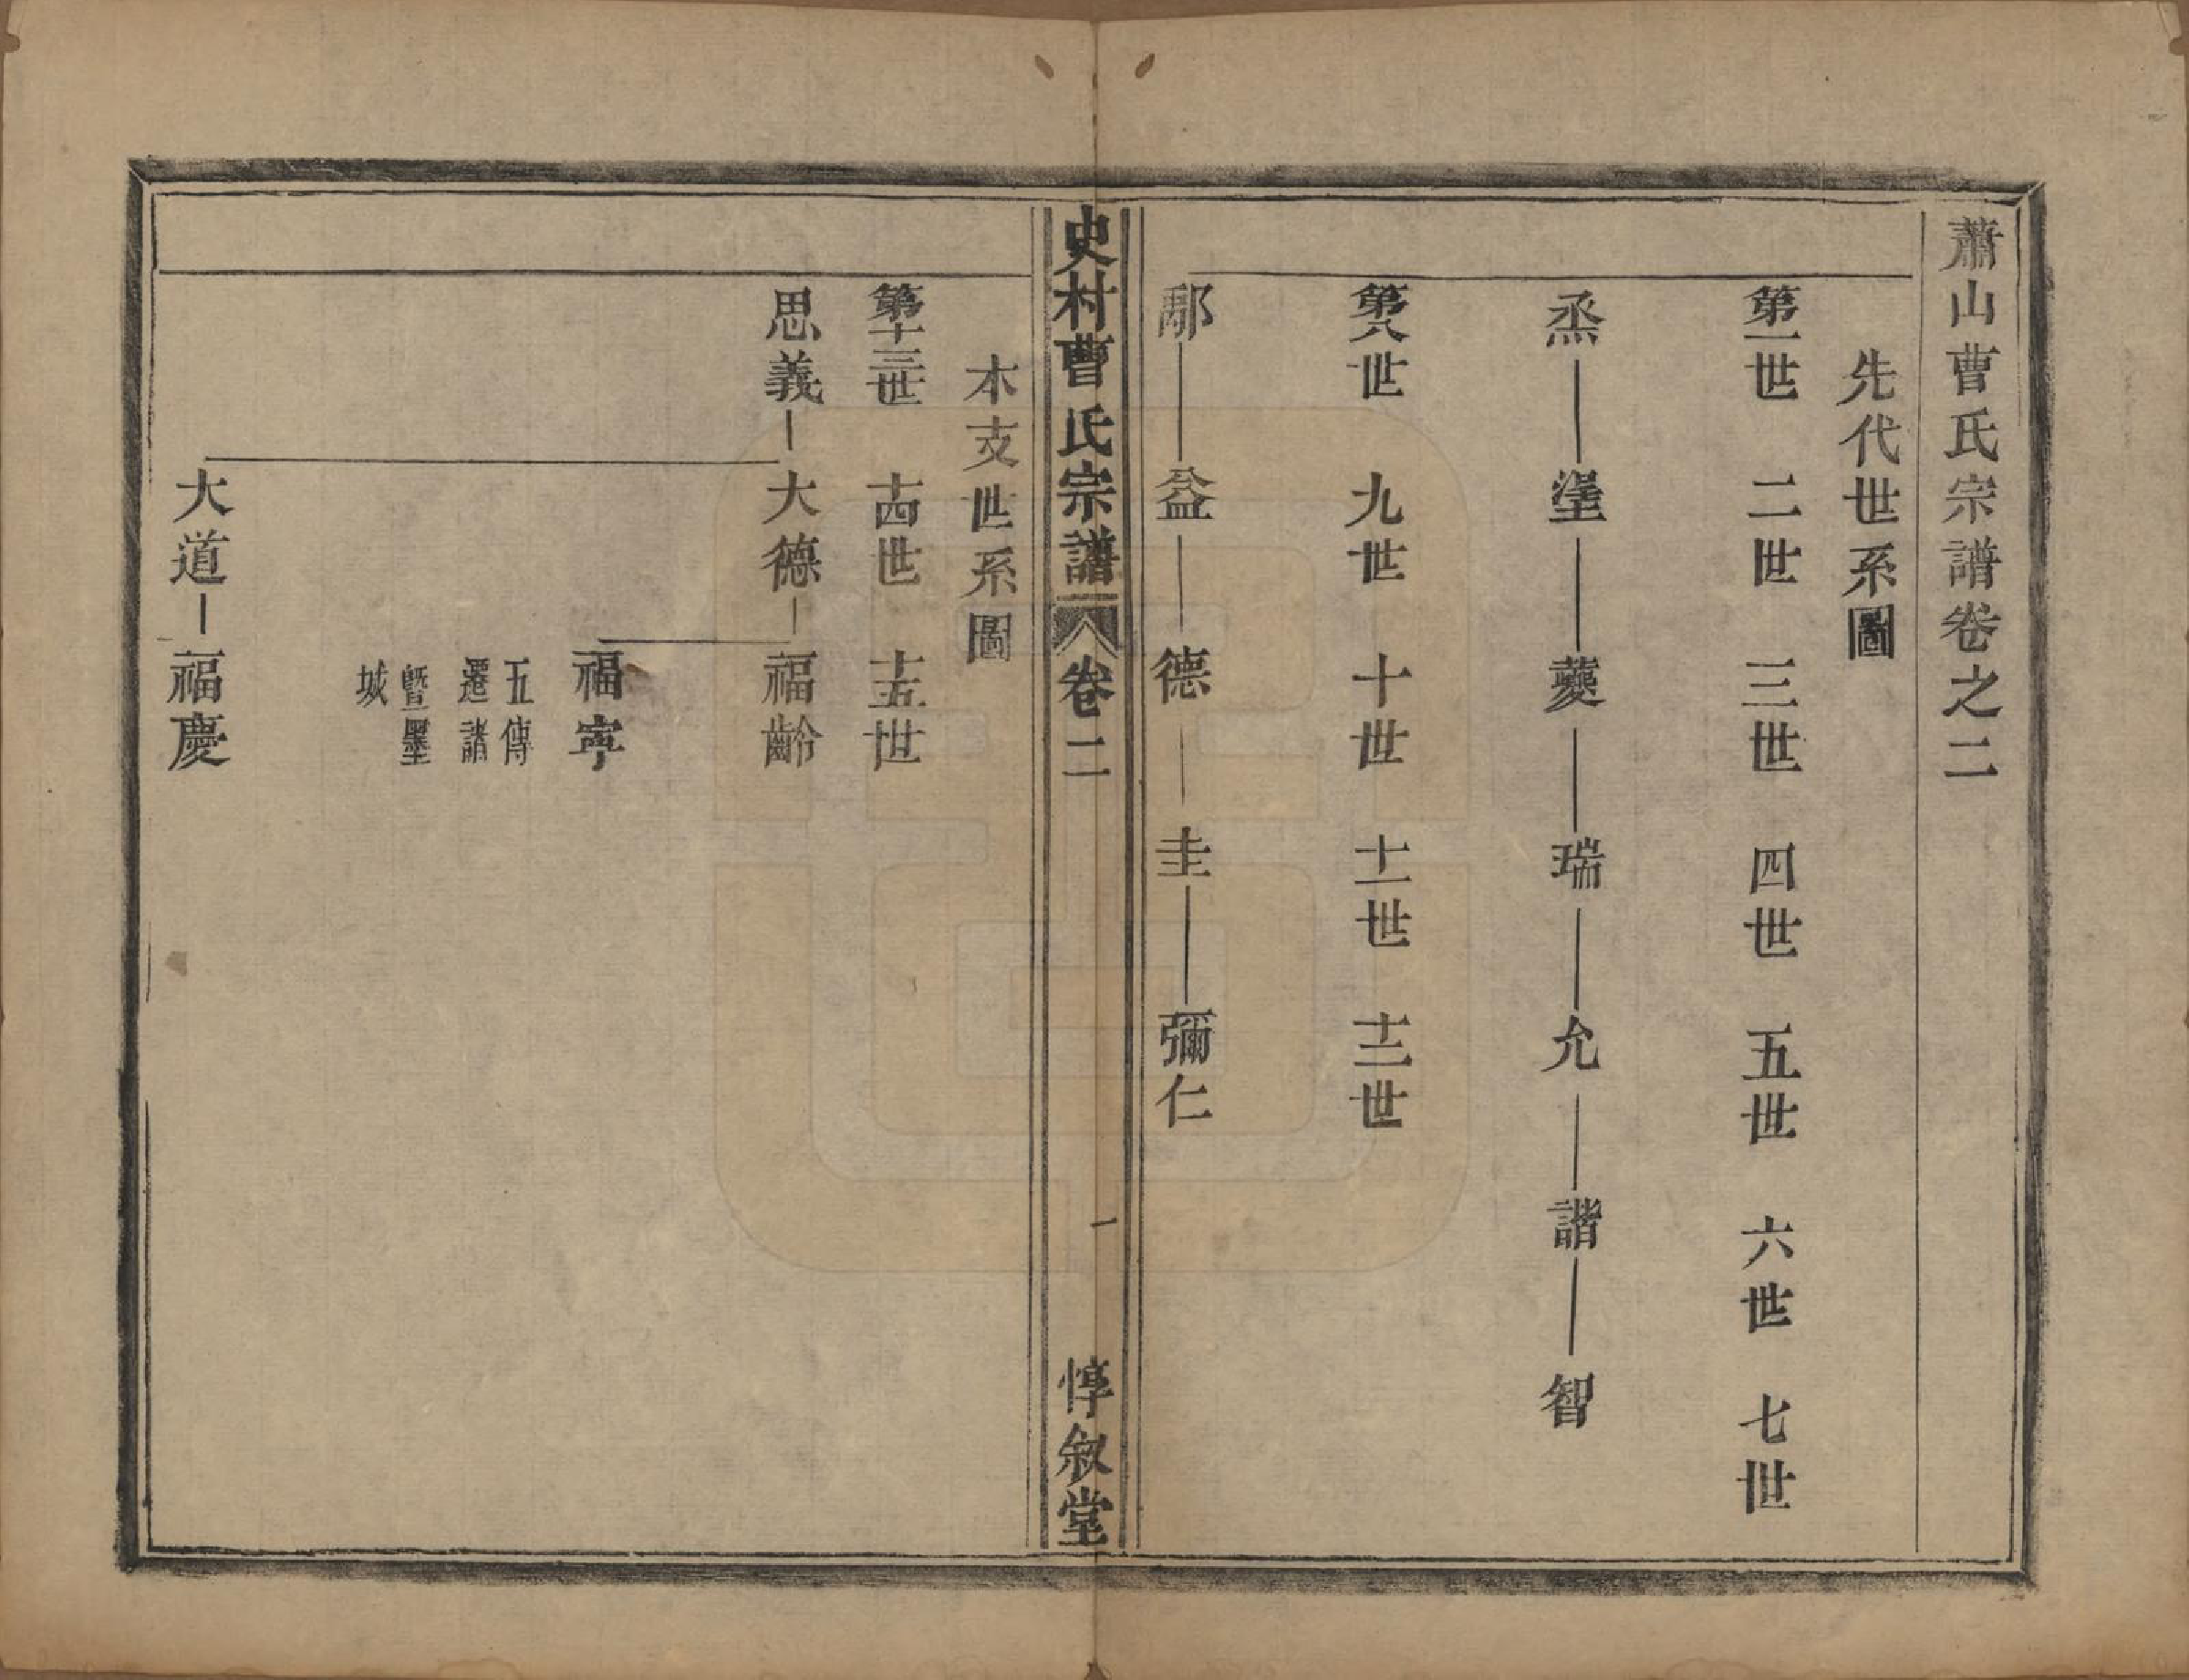 蕭山曹氏宗譜卷之二
先代世系圖
第一世 二世 三世 四世 五世 六世 七世
烝 瑬 夔 瑞 允 諧 智
第八世 九世 十世 十一世 十二世
鄅 益 德 圭 彌仁
史村曹氏宗譜 卷二 一 惇叙堂
本支世系圖
第十三世 十四世 十五世
思義 大德 福齡
福寧
五傳
遷諸
暨墨
城
大道 福慶